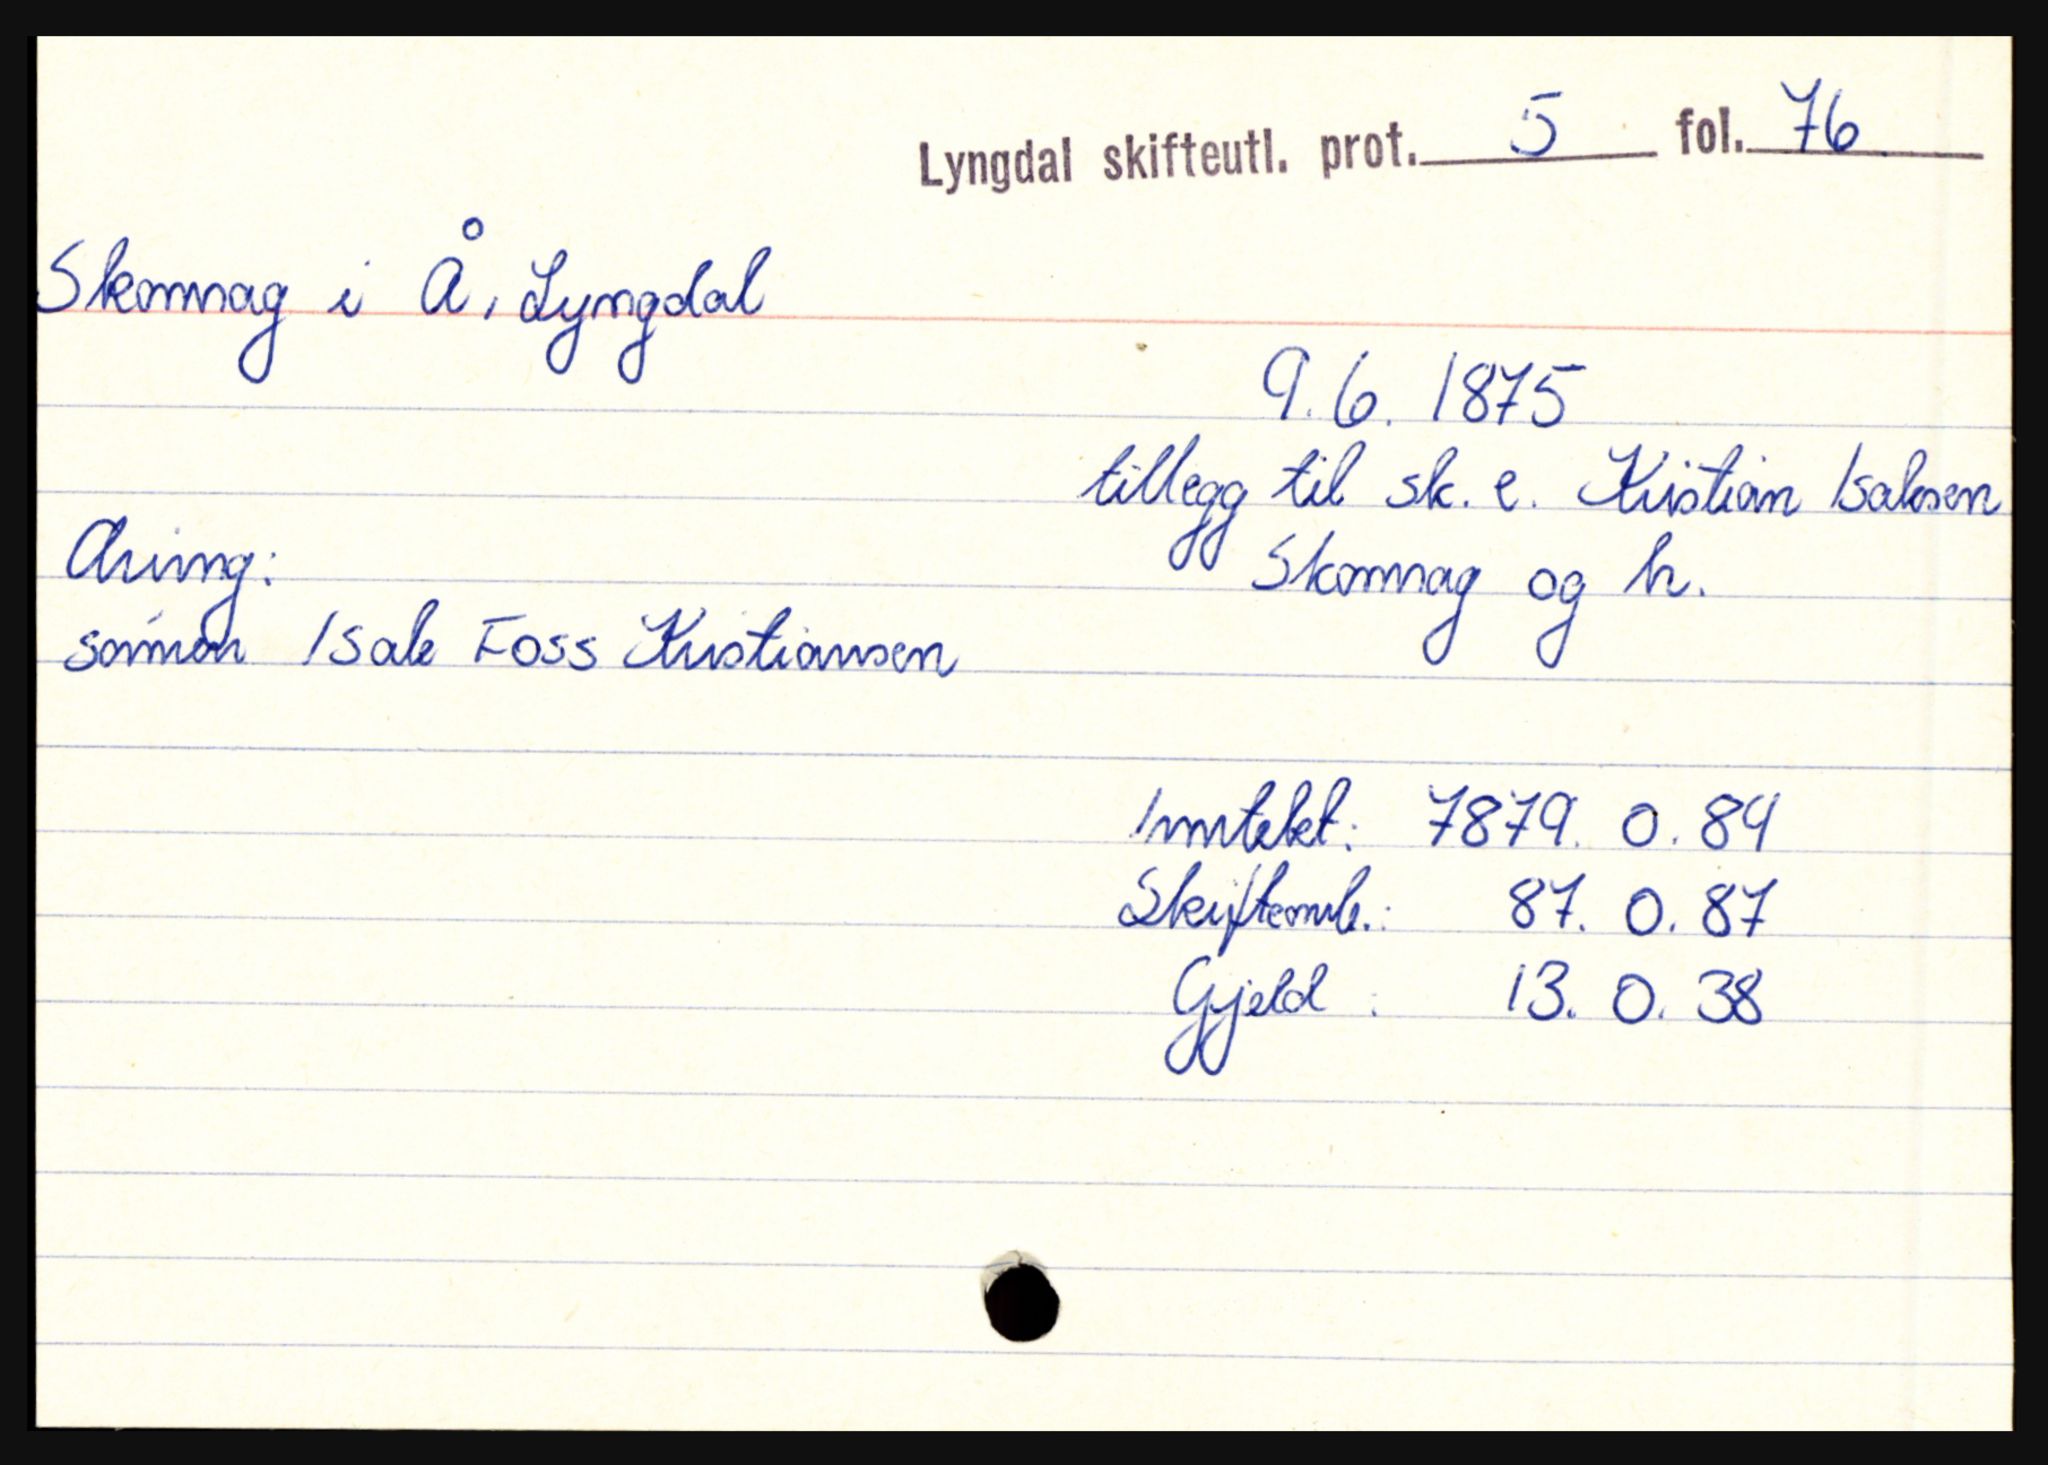 Lyngdal skifteutl. prot. 5 fol. 76
Skomnag i Å, Lyngdal
9. 6. 1875
tillegg til sk. e. Kristian Isaksen
Skomnag og h.
Arving:
sønnen Isak Foss Kristiansen
Inntekt: 7879. 0. 84
Skifteomk.: 87. 0. 87
Gjeld : 13. 0. 38